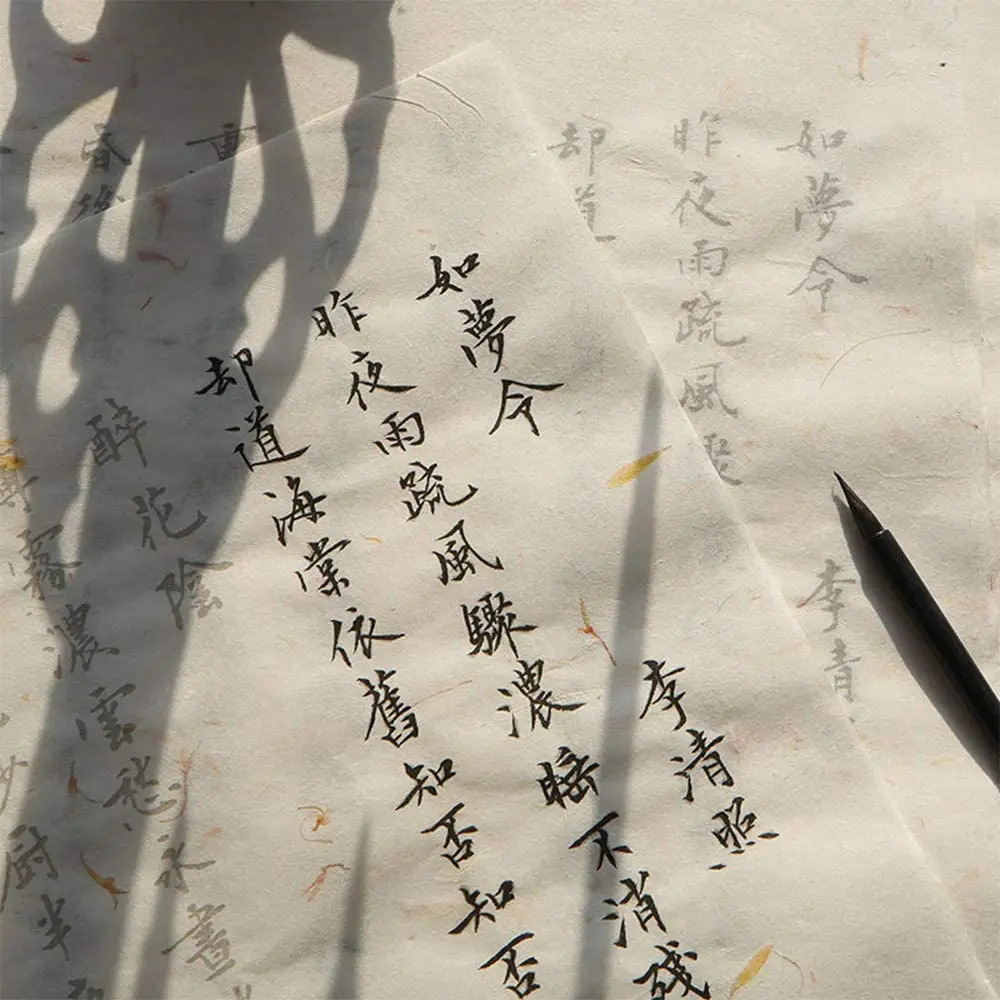 如夢令
李清照
昨夜雨疏風驟濃睡不消殘
却道海棠依舊知否知否
如夢令
李清
昨夜雨疏風驟
却道
醉花陰
霧濃雲愁永晝
廚半
重
昏後